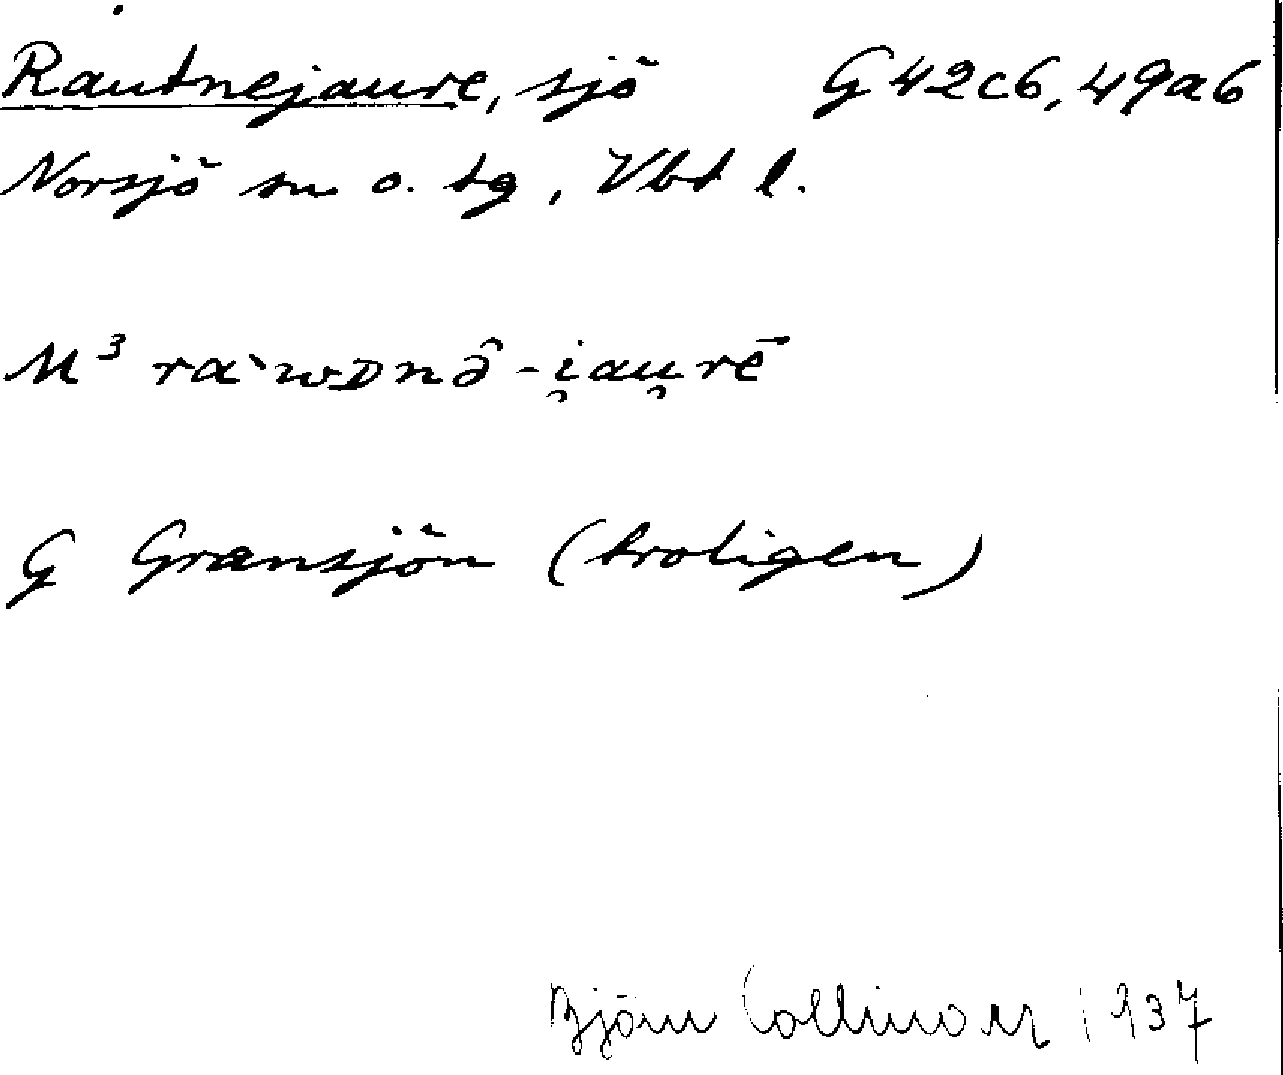 Rautnejaure, sjö G 42c6, 49a6
Norsjö sn o. tg, Vbt l.
M³ ra`wDnô-i̯au̯rē
G Gransjön (troligen)
Björn Collinder 1937